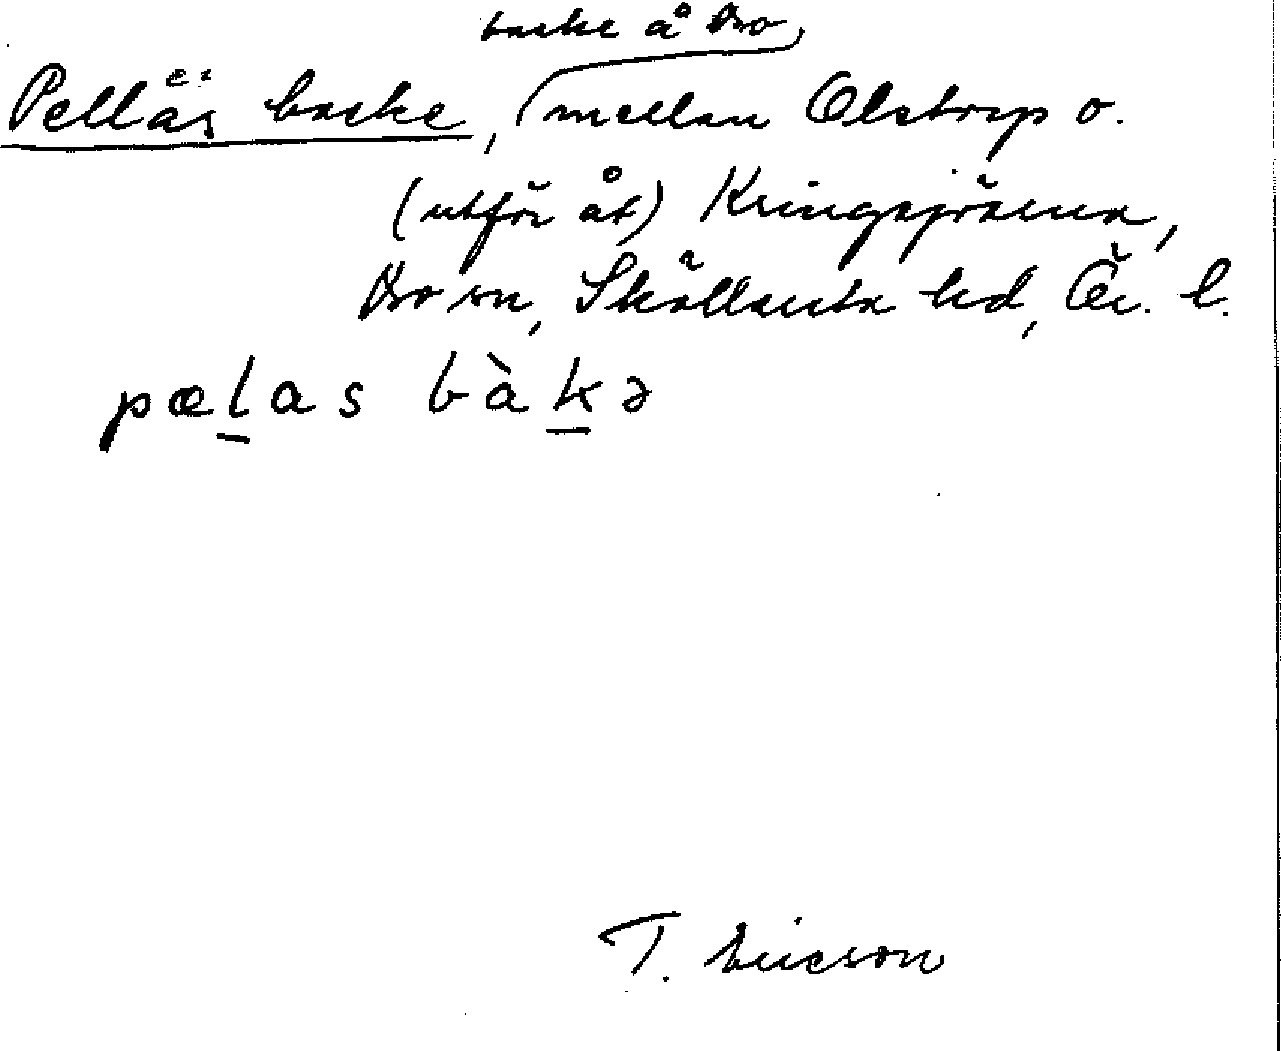 backe å Bro
Pellås backe, mellan Olstorp o.
(utför åt) Kringssjöarna,
Bro sn, Skållanta hd, Ör. l.
pælas bàkə
T. Ericson